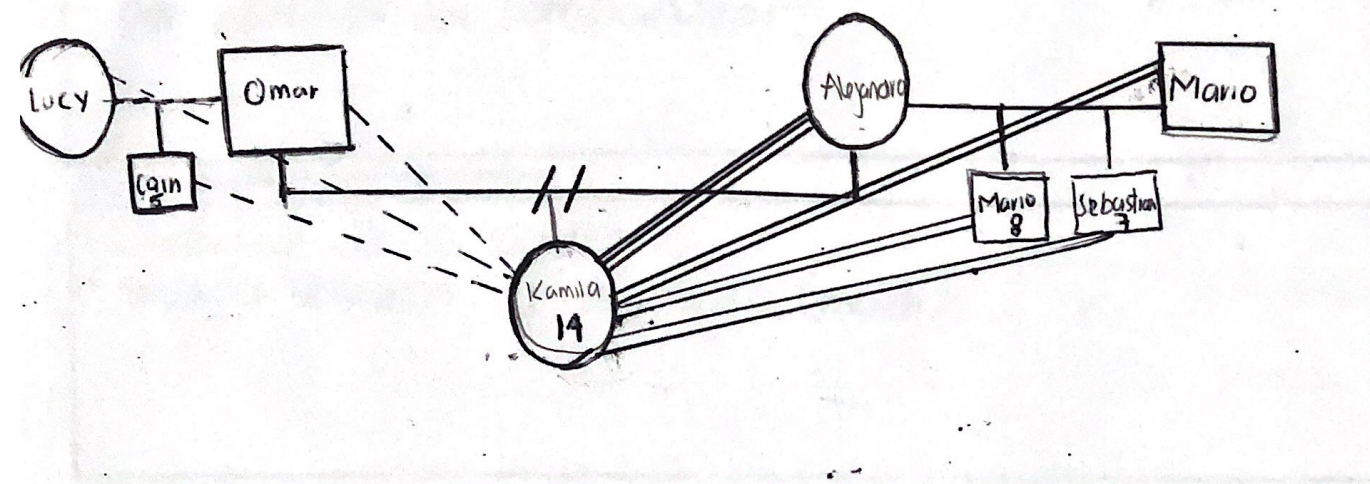 Lucy
Omar
Alejandra
Mario
Cain
5
Mario
8
Sebastian
7
Kamila
14